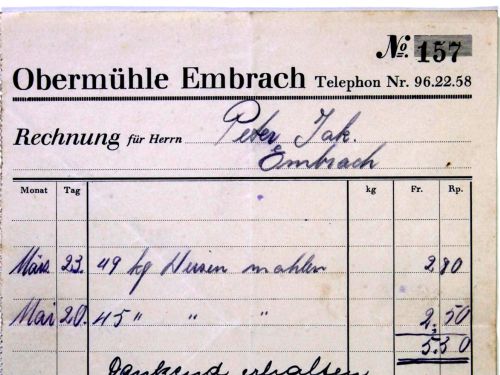 No. 157
Obermühle Embrach Telephon Nr. 96.22.58
Rechnung für Herrn Peter Jak.
Embrach
Monat Tag kg Fr. Rp.
März 23. 49 kg mahlen 2 80
Mai 20. 45 " " " 2. 50
5.30
Dankend erhalten